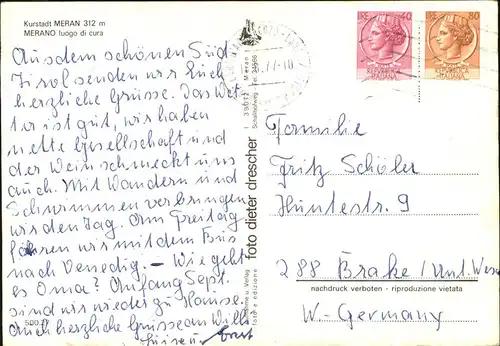 Kurstadt MERAN 312 m
MERANO luogo di cura
Aus dem schönen Süd-
Tirol senden wir Euch
herzliche Grüsse. Das Wet-
ter ist gut, wir haben
nette Gesellschaft und
der Wein schmeckt uns
auch. Mit Wandern und
Schwimmen verbringen
wir den Tag. Am Freitag
fahren wir mit dem Bus
nach Venedig. – Wie geht
es Oma? Anfang Sept.
sind wir wieder zu Hause.
Auch herzliche Grüsse an Willi
Luise u. Ernst
foto dieter drescher
I 39012 Meran
Familie
Fritz Schöler
Huntestr. 9
288 Brake / Unt. Wes
nachdruck verboten - riproduzione vietata
W-Germany